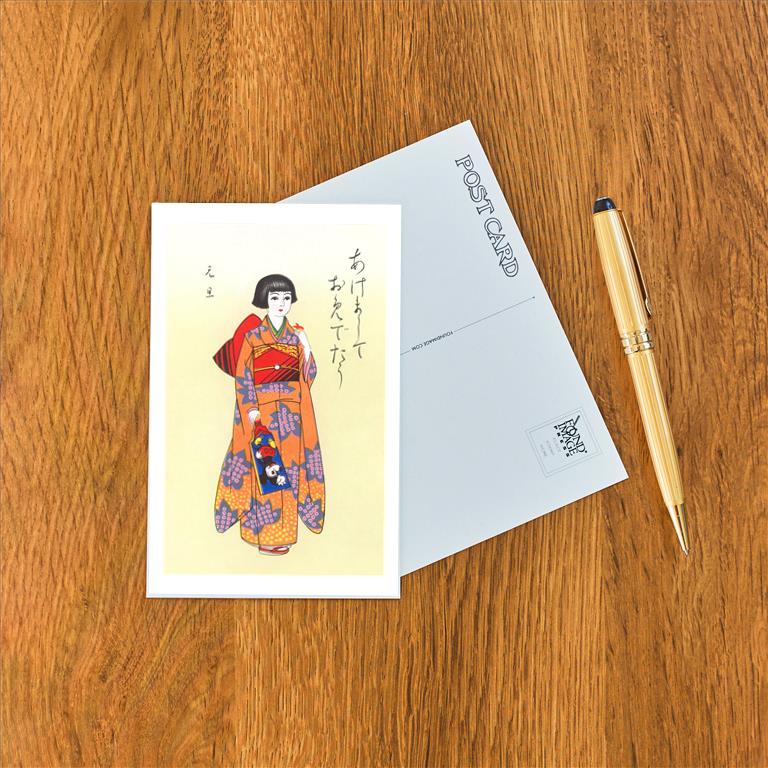 あけまして
お免でたう
元旦
POST CARD
FOUNDIMAGE.COM
FOUND
IMAGE